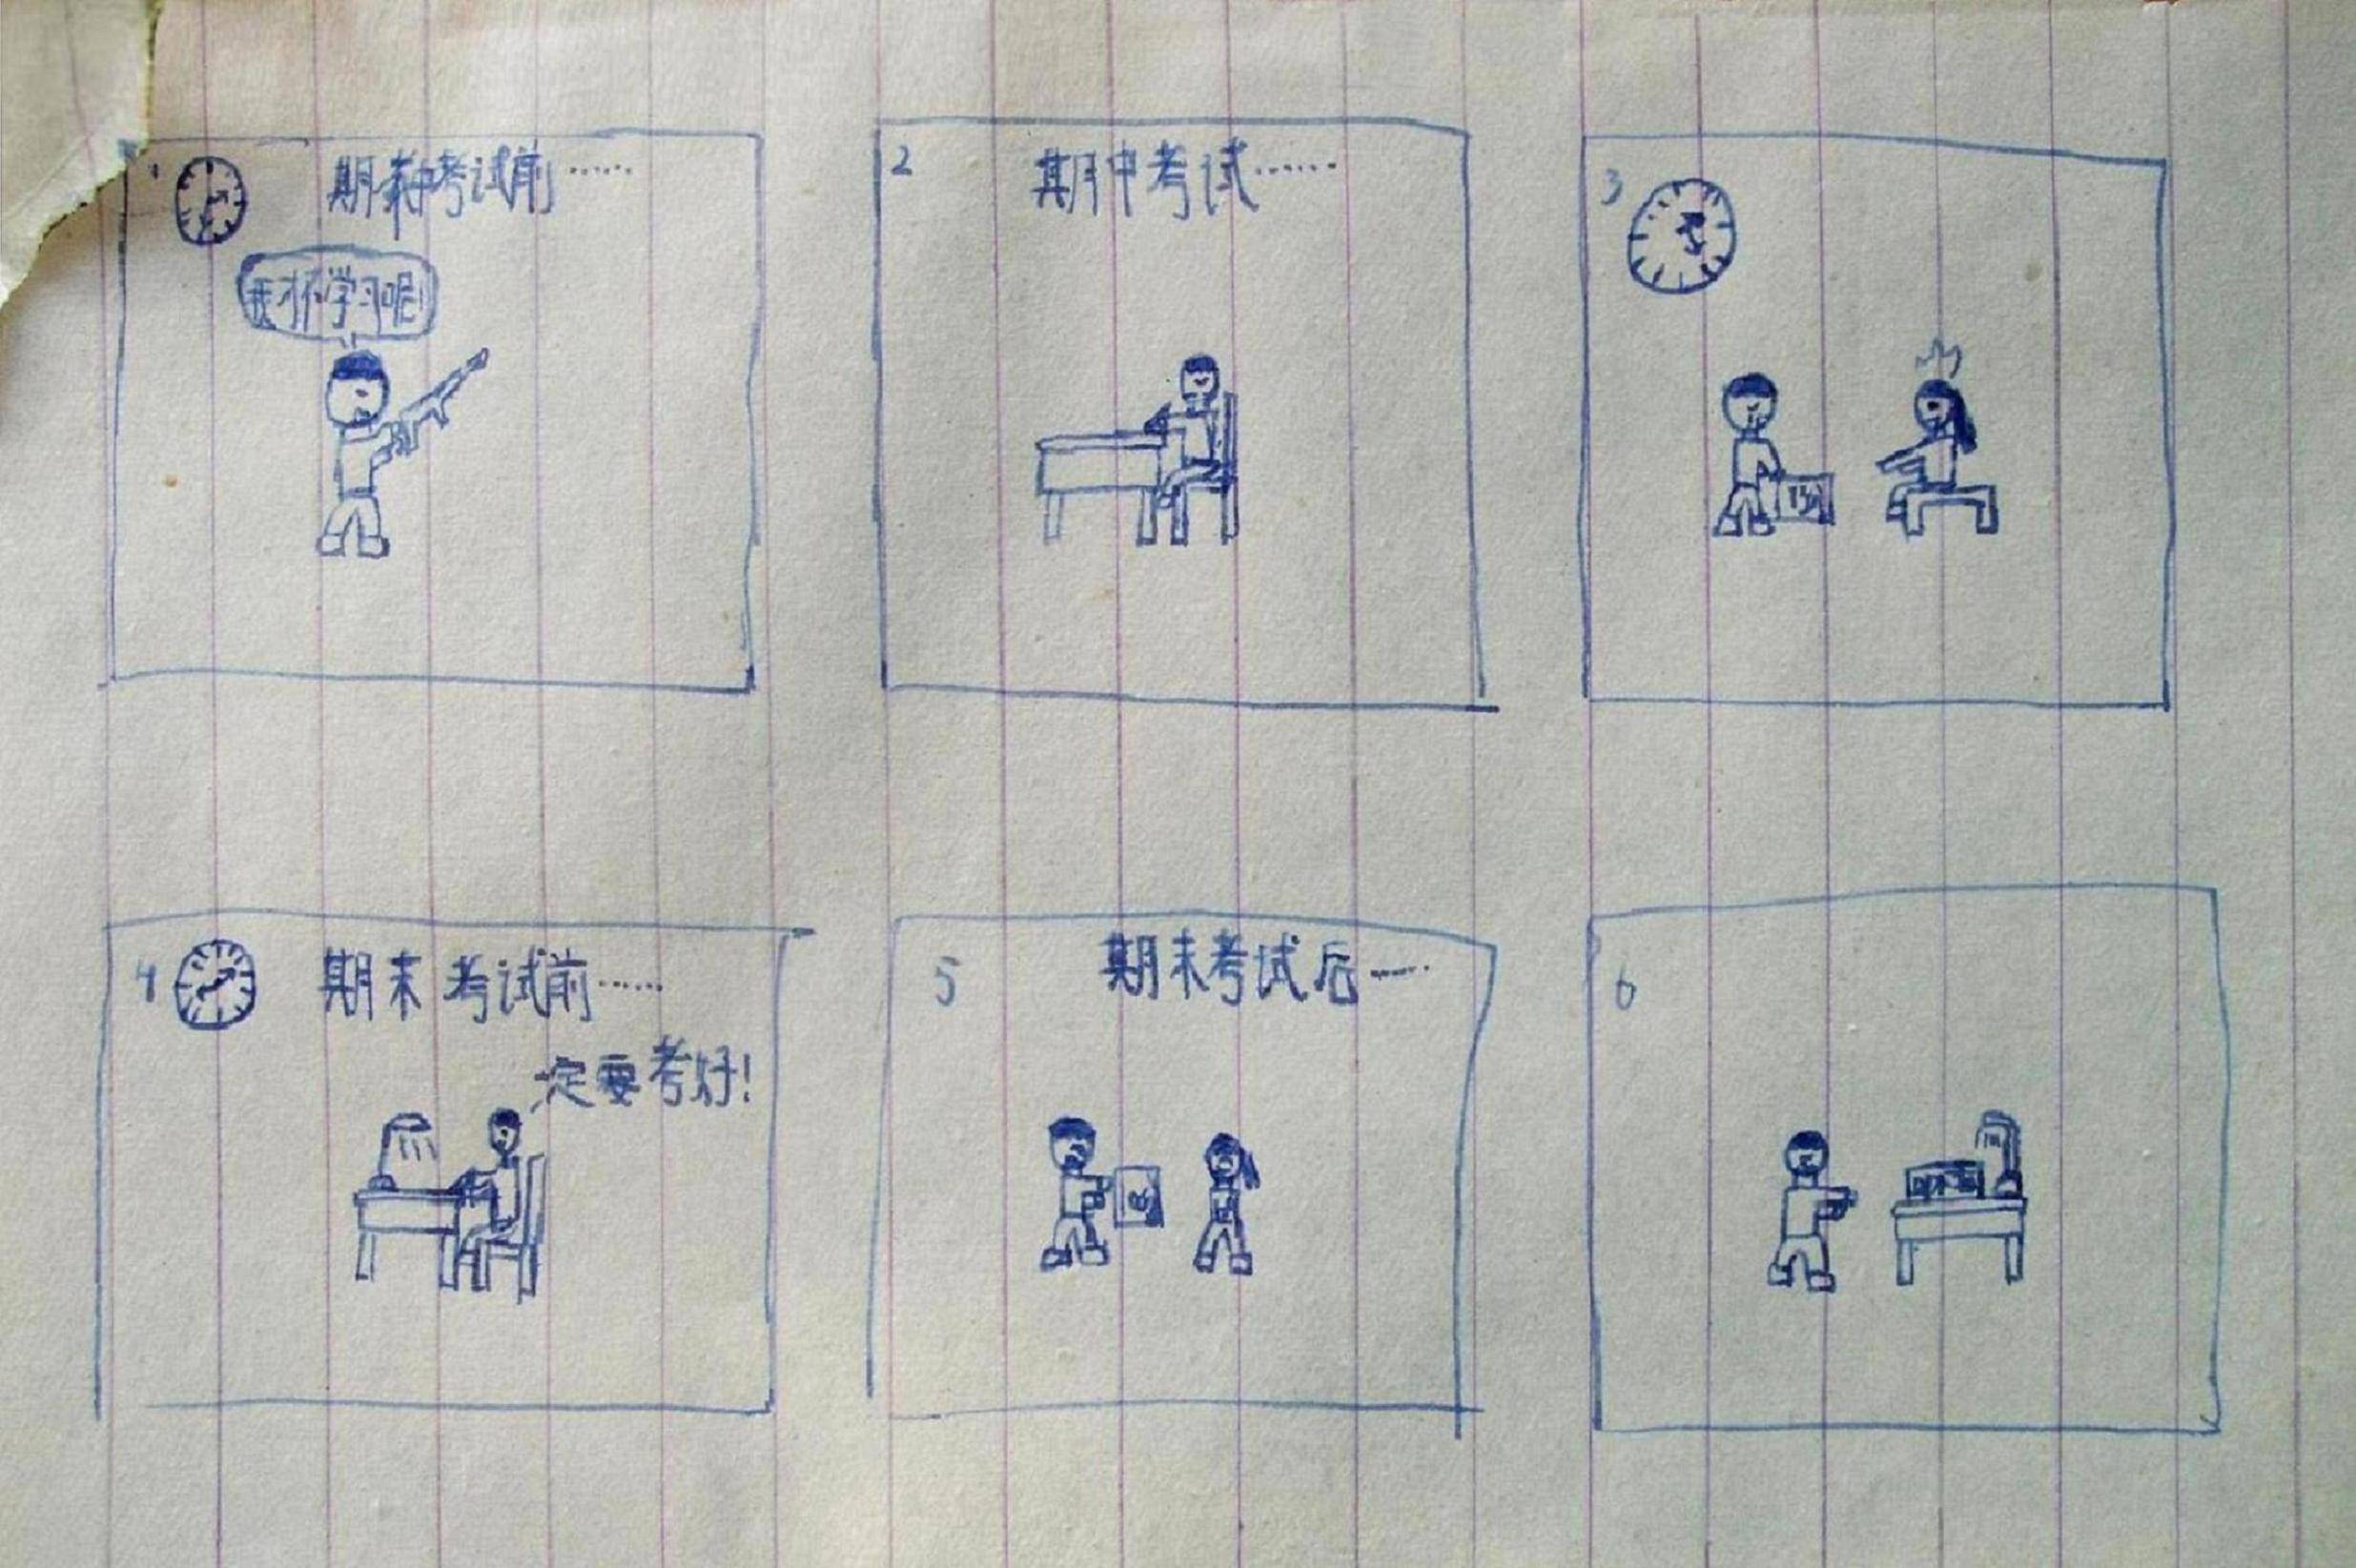 1
期中考试前……
我才不学习呢!
2
期中考试……
3
4
期末考试前……
一定要考好!
5
期末考试后……
6